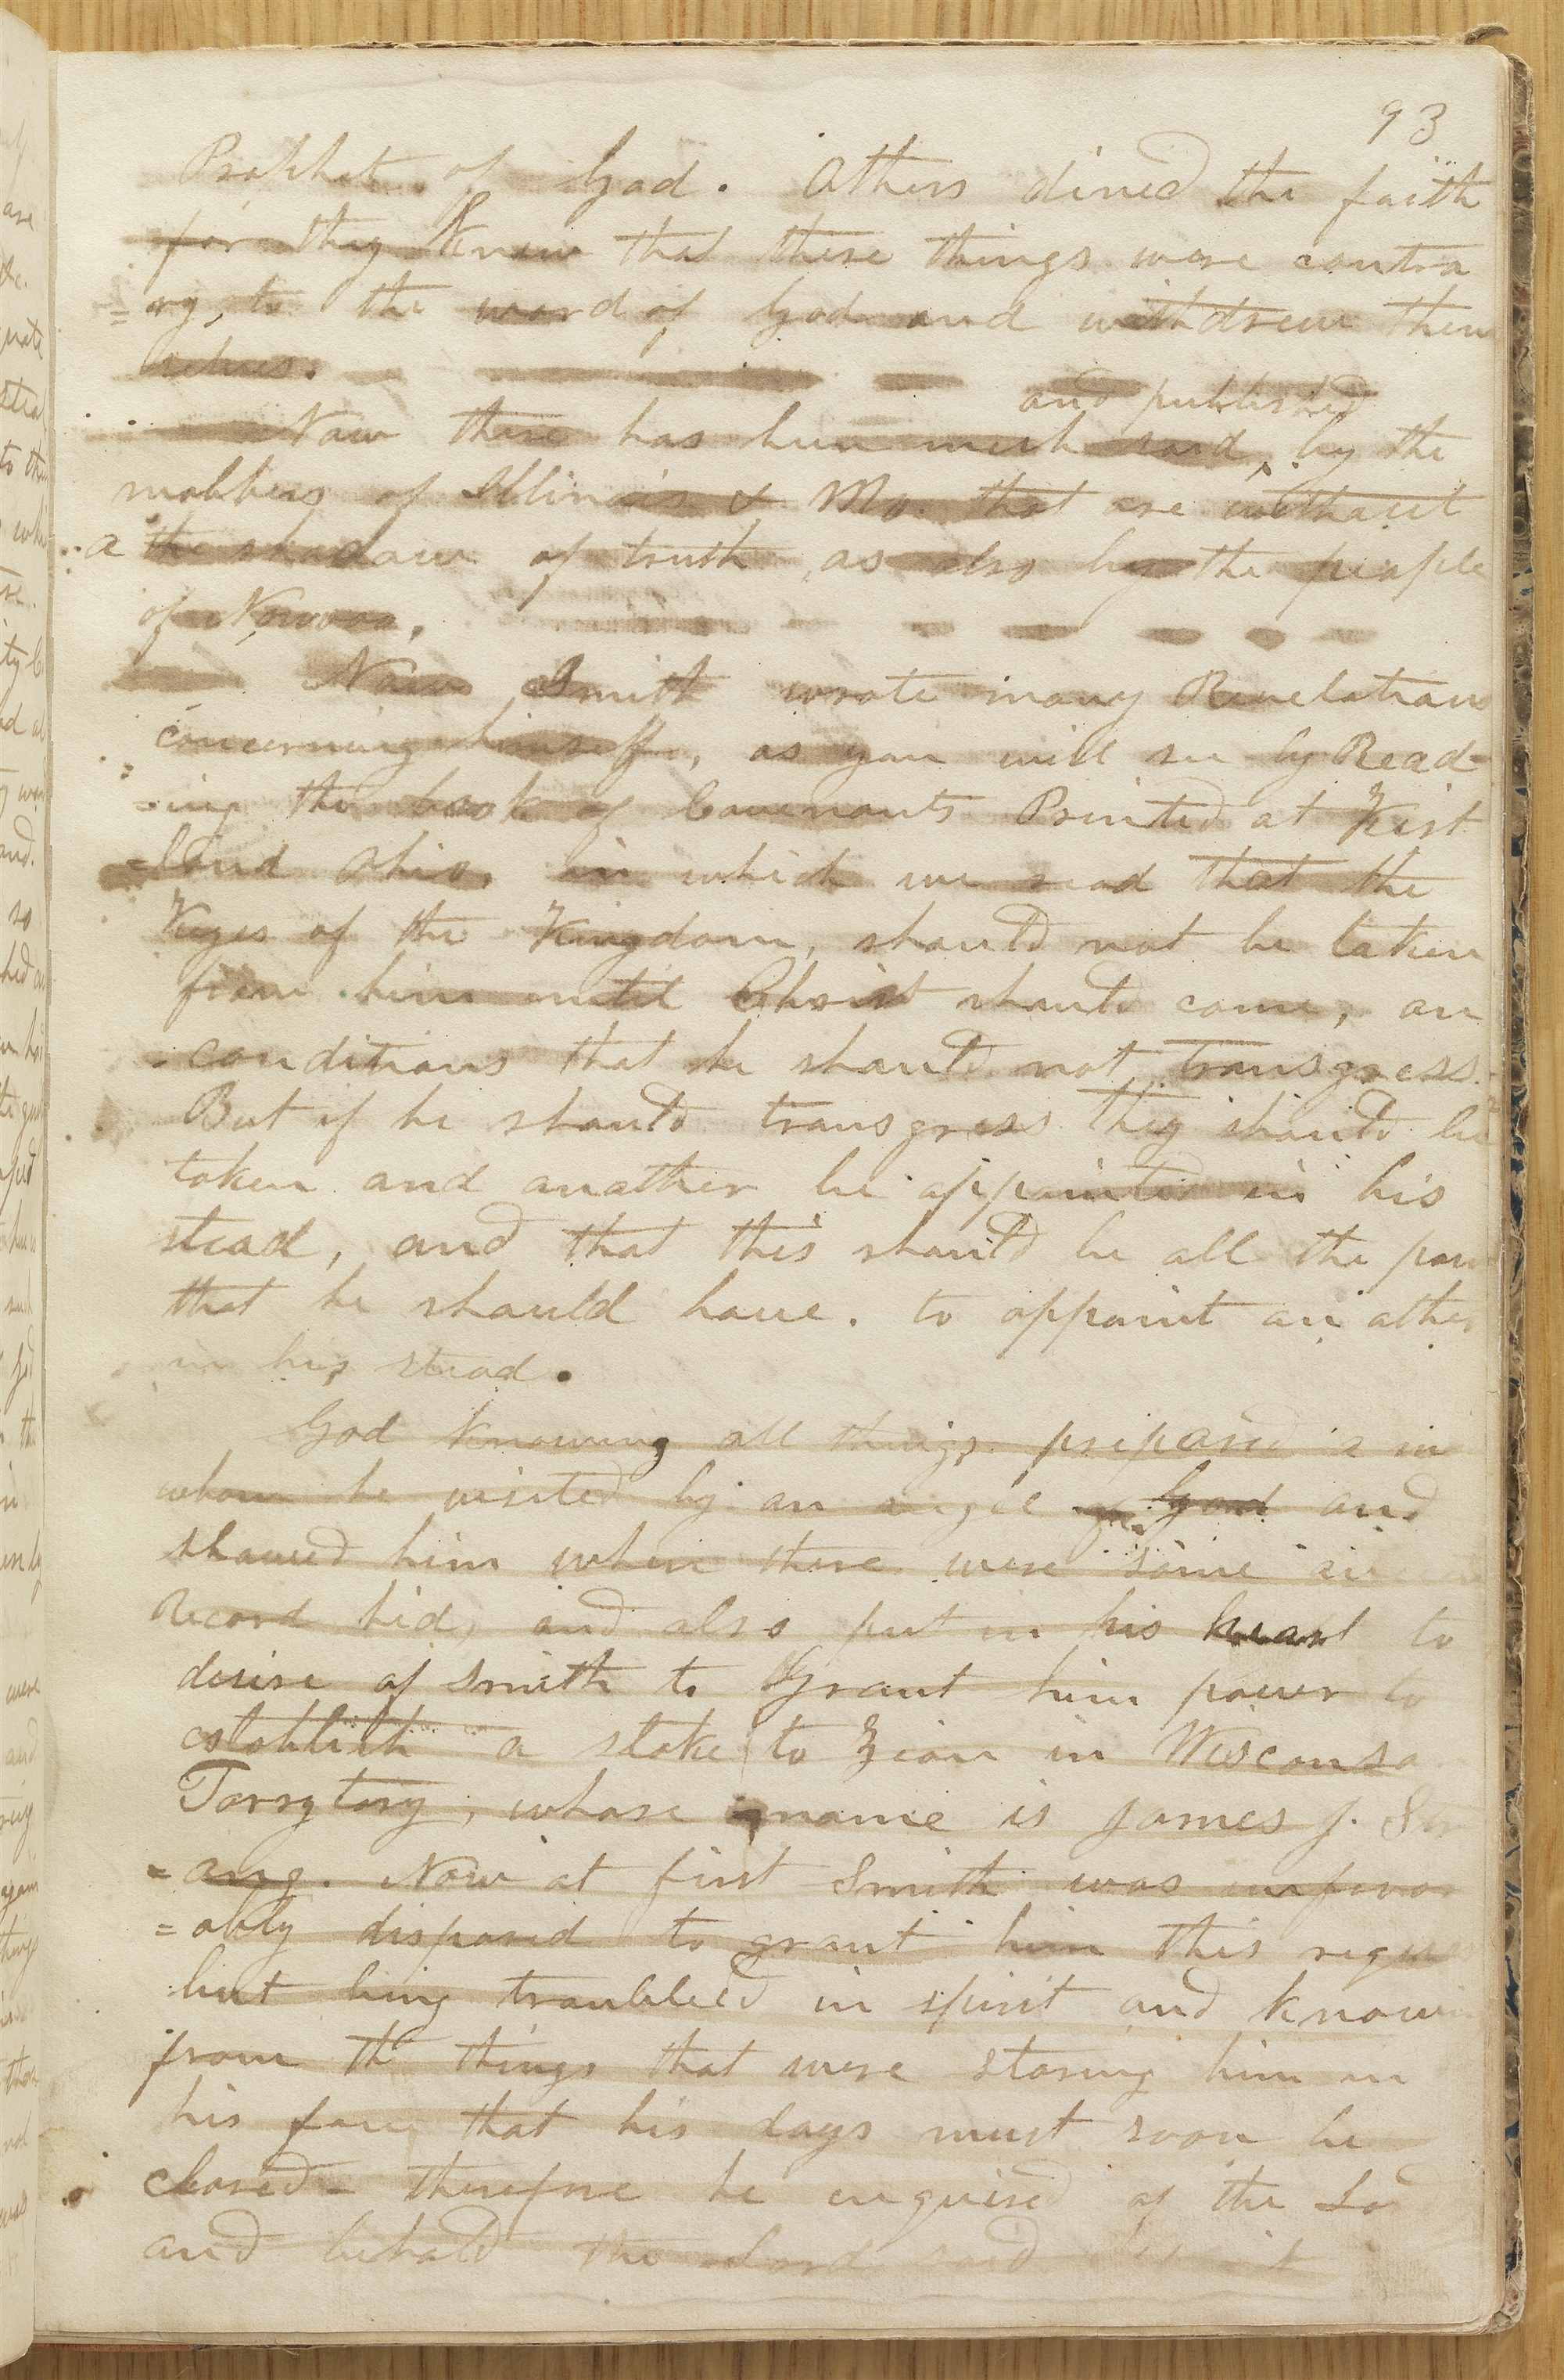 93
Prophet of God. Others dined the faith
for they Knew that these things were contra
=ry, to the word of God and withdrew them
selves.
and published
Now there has been much said, by the
mobbers of Illinois & Mo. that are without
a the shadow of truth, as also by the people
of Novooo.
Now Smith wrote many Revelations
concerning himself, as you will see by Read-
=ing the book of Covenants Printed at Kirt
=land Ohio. in which we read that the
Keyes of the Kingdom, should not be taken
from him until Christ should come, on
conditions that he should not transgress.
But if he should transgress they should be
token and another be appointed in his
stead, and that this should be all the pow
that he should have. to appoint an other
in his stead.
God knowing all things prepared a m
whom he visited by an angel of God and
showed him where there were some
Record hid, and also put in his heart to
desire of Smith to Grant him power to
establish a stake to Zion in Wisconsa
Terrytory, whose name is James J. Str
=ang. Now at first Smith was unfavor
=ably disposed to grant him this reques
but being troubbled in spirit and knowing
from the things that were staring him in
his face that his days must soon be
closed- therefore he enquired of the Lord
and behold the Lord said